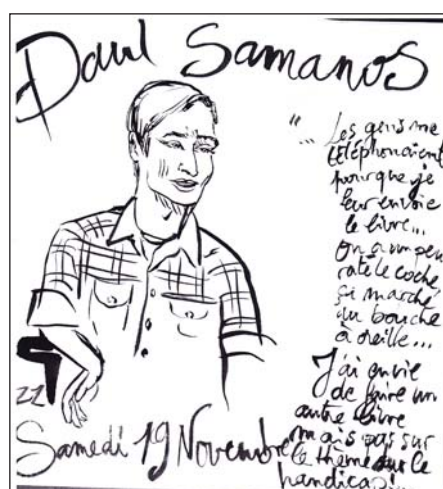 Paul Samanos
" ... Les gens me
téléphonaient
pour que je
leur envoie
le livre...
On a un peu
raté le coche,
ça marche
au bouche
à oreille...
J'ai envie
de faire un
autre livre
mais pas sur
le thème sur le
handicap!..
Samedi 19 Novembre